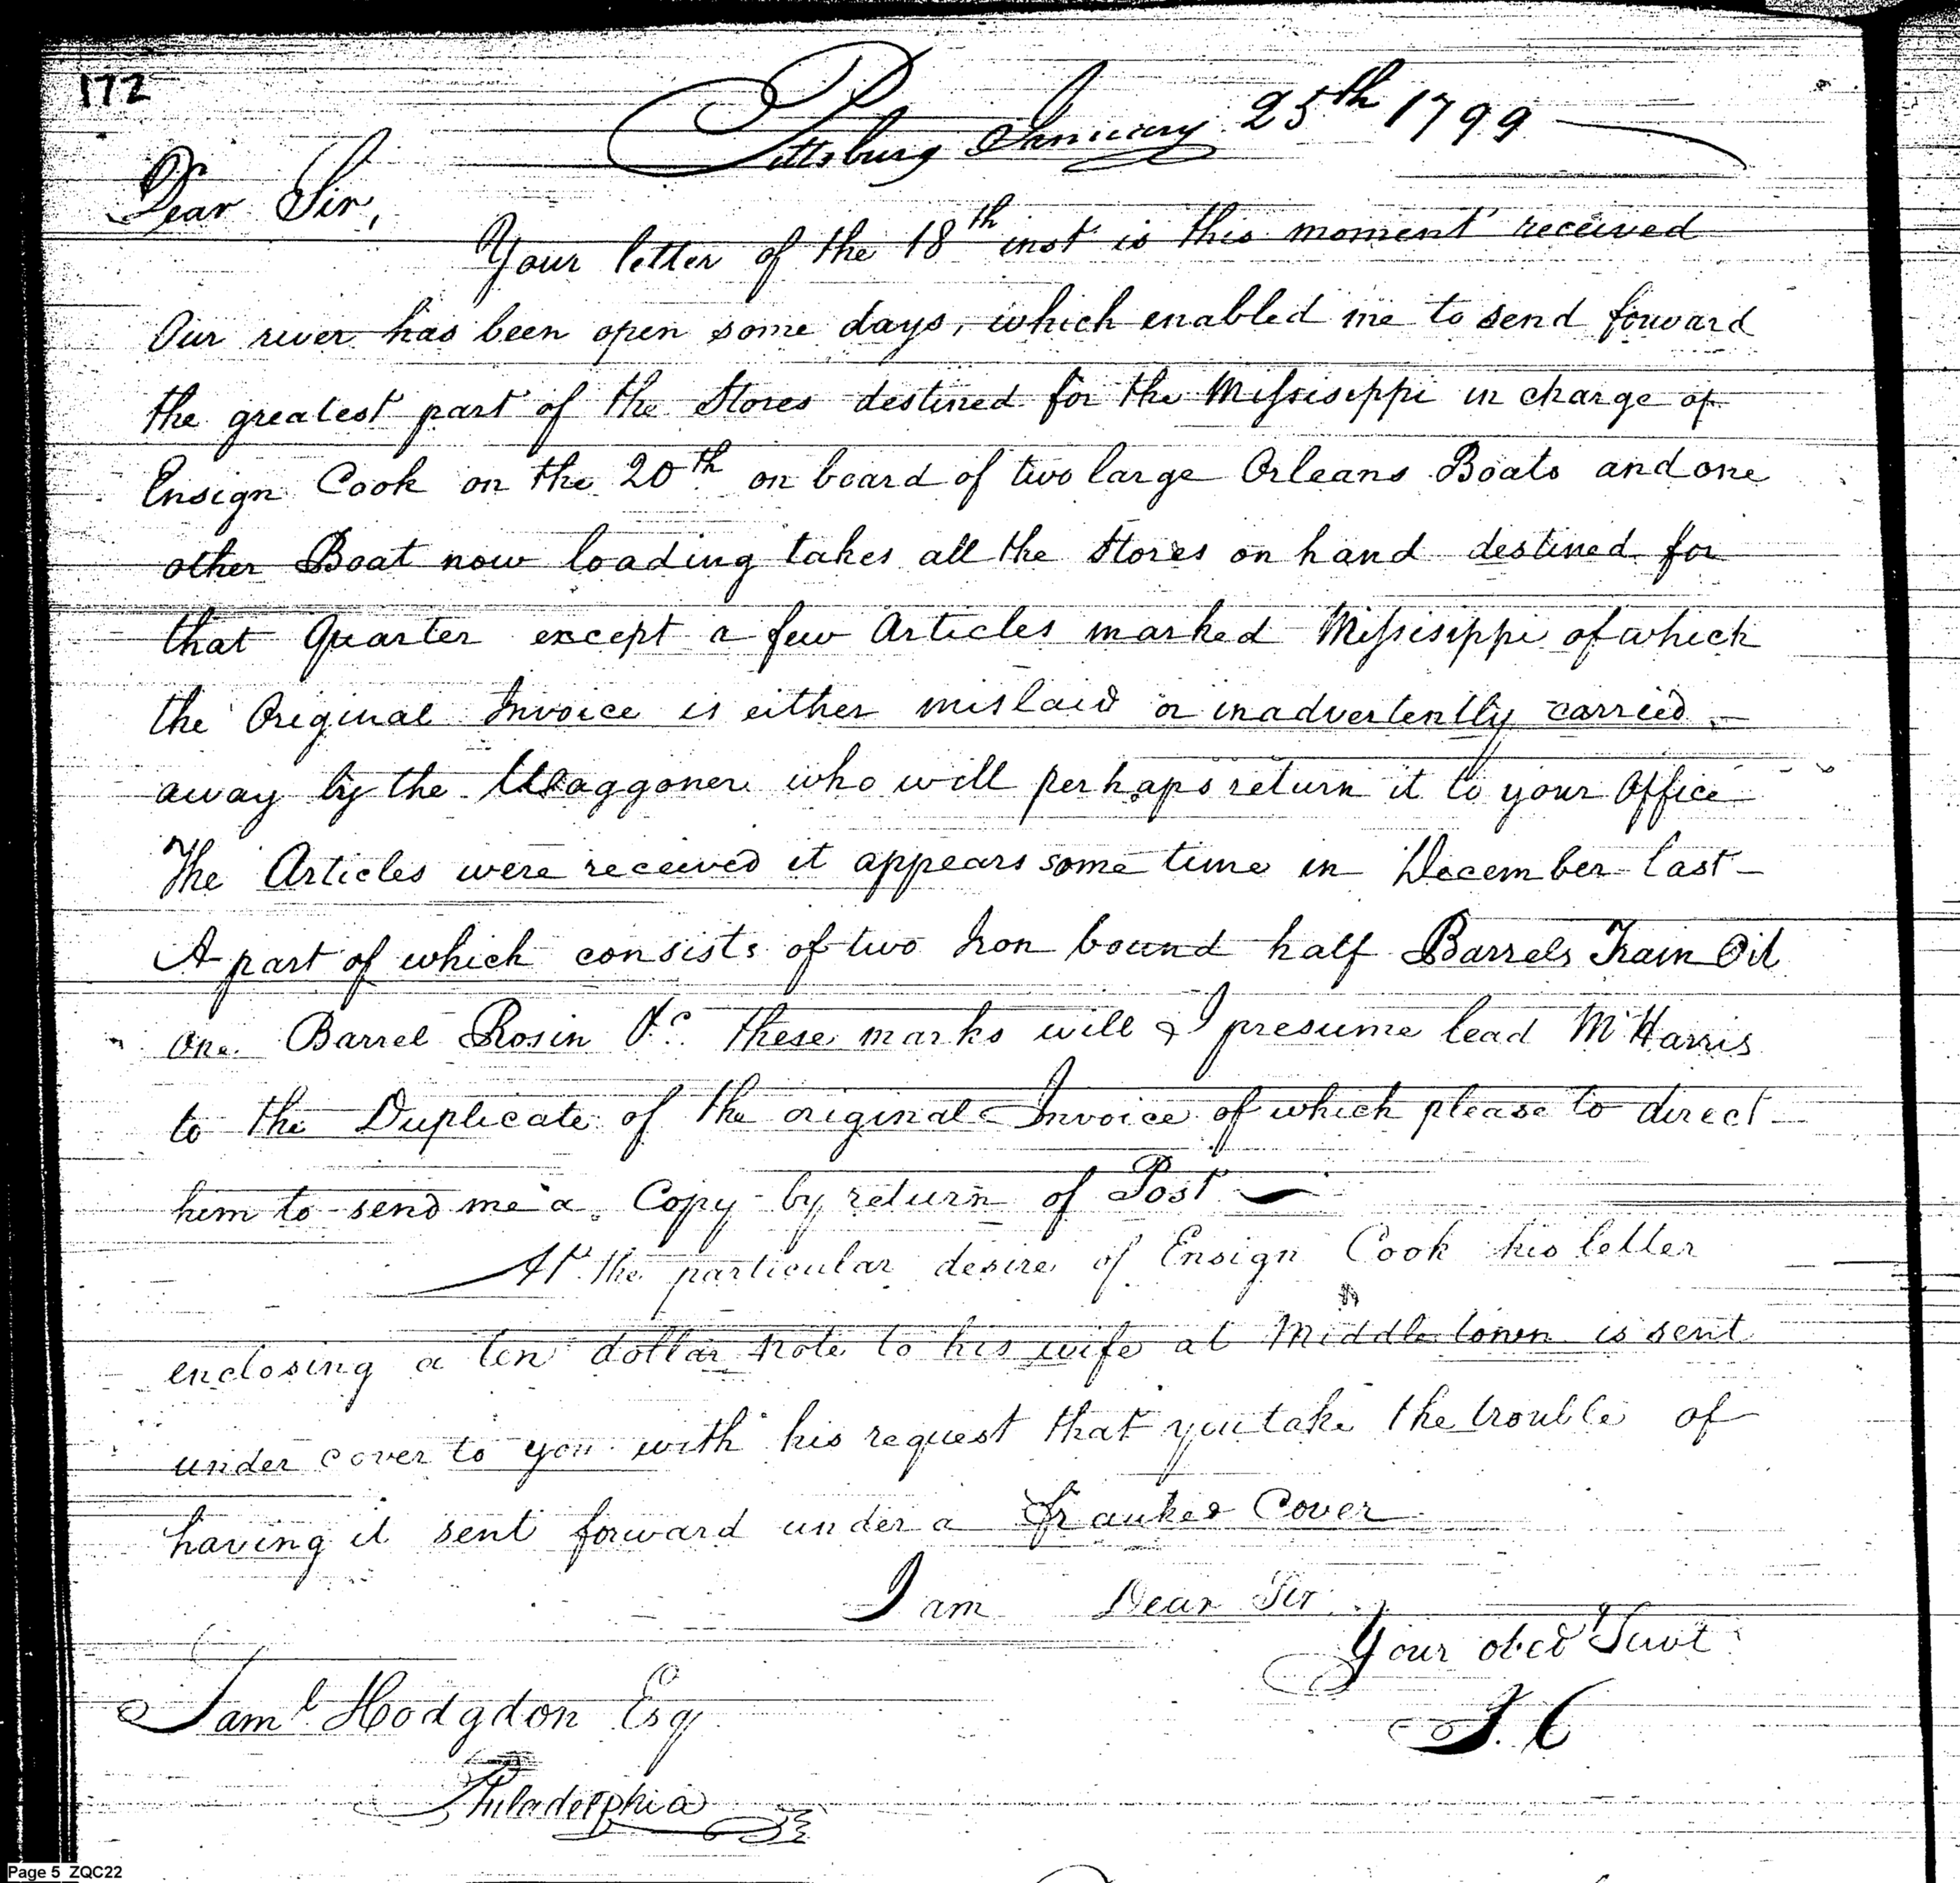 172
Pittsburg January 25th 1799
Dear Sir,
Your letter of the 18th inst is this moment received
Our river has been open some days, which enabled me to send forward
the greatest part of the Stores destined for the Missisippi in charge of
Ensign Cook on the 20th on board of two large Orleans Boats and one
other Boat now loading takes all the Stores on hand destined for
that Quarter except a few Articles marked Missisippi of which
the Original Invoice is either mislaid or inadvertently carried
away by the Waggoner who will perhaps return it to your Office
The Articles were received it appears some time in December last -
A part of which consists of two Iron bound half Barrels Train Oil
one Barrel Rosin &c. these marks will I presume lead Mr Harris
to the Duplicate of the original Invoice of which please to direct
him to send me a Copy by return of Post —
At the particular desire of Ensign Cook his letter
enclosing a ten dollar Note to his wife at Middletown is sent
under cover to you with his request that you take the trouble of
having it sent forward under a Franked Cover
I am Dear Sir
Your obed Servt
Saml Hodgdon Esq
J. C
Philadelphia
Page 5 ZQC22